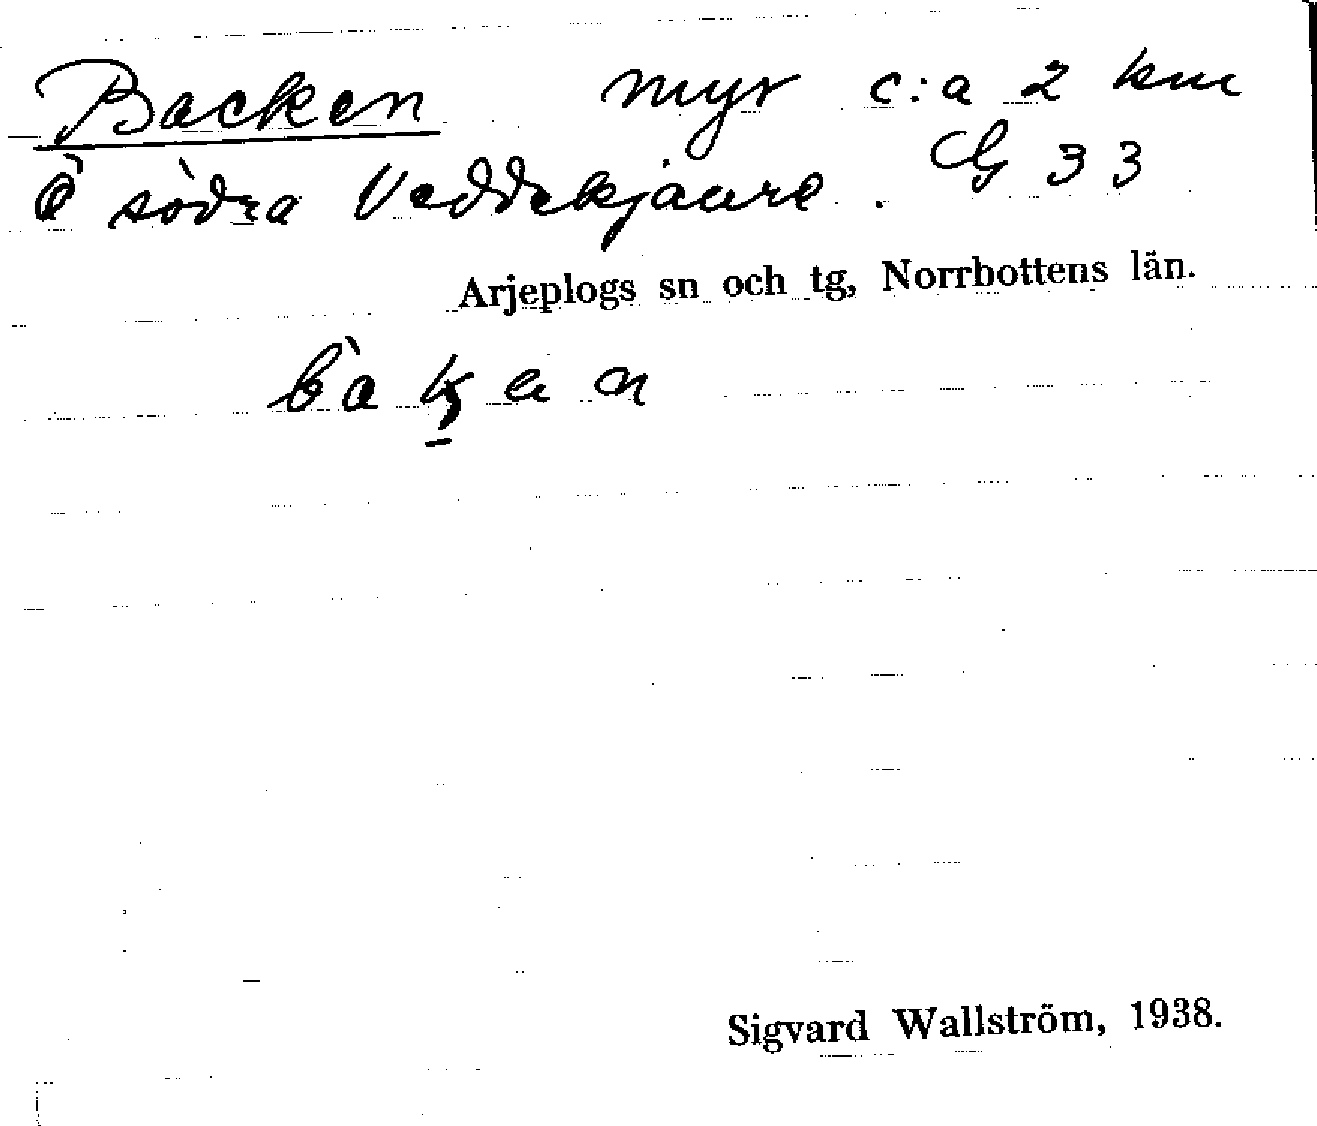 Backen myr c:a 2 km
Ö södra Veddekjaure. G 33
Arjeplogs sn och tg, Norrbottens län.
Sigvard Wallström, 1938.